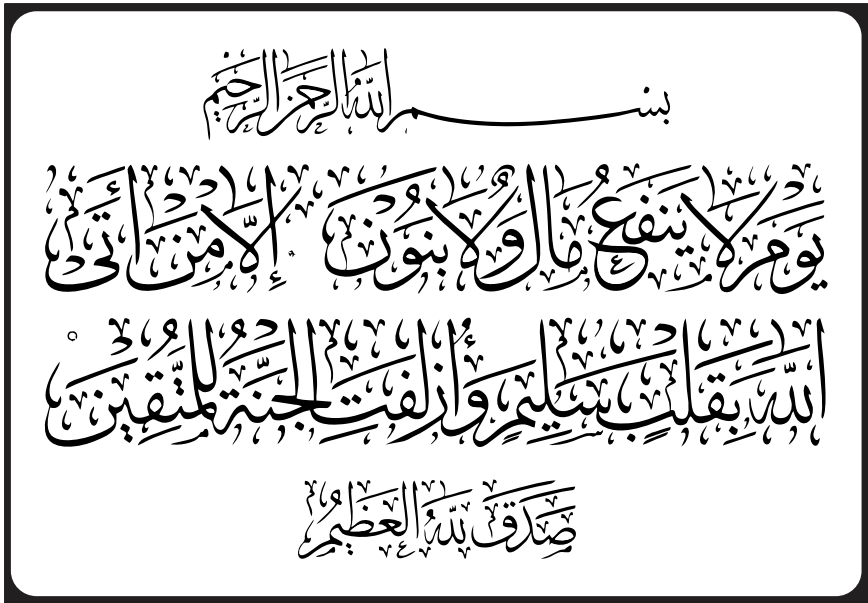 بسم الله الرحمن الرحيم
يَوْمَ لَا يَنفَعُ مَالٌ وَلَا بَنُونَ إِلَّا مَنْ أَتَى
اللَّهَ بِقَلْبٍ سَلِيمٍ وَأُزْلِفَتِ الْجَنَّةُ لِلْمُتَّقِينَ
صَدَقَ اللهُ الْعَظِيمُ